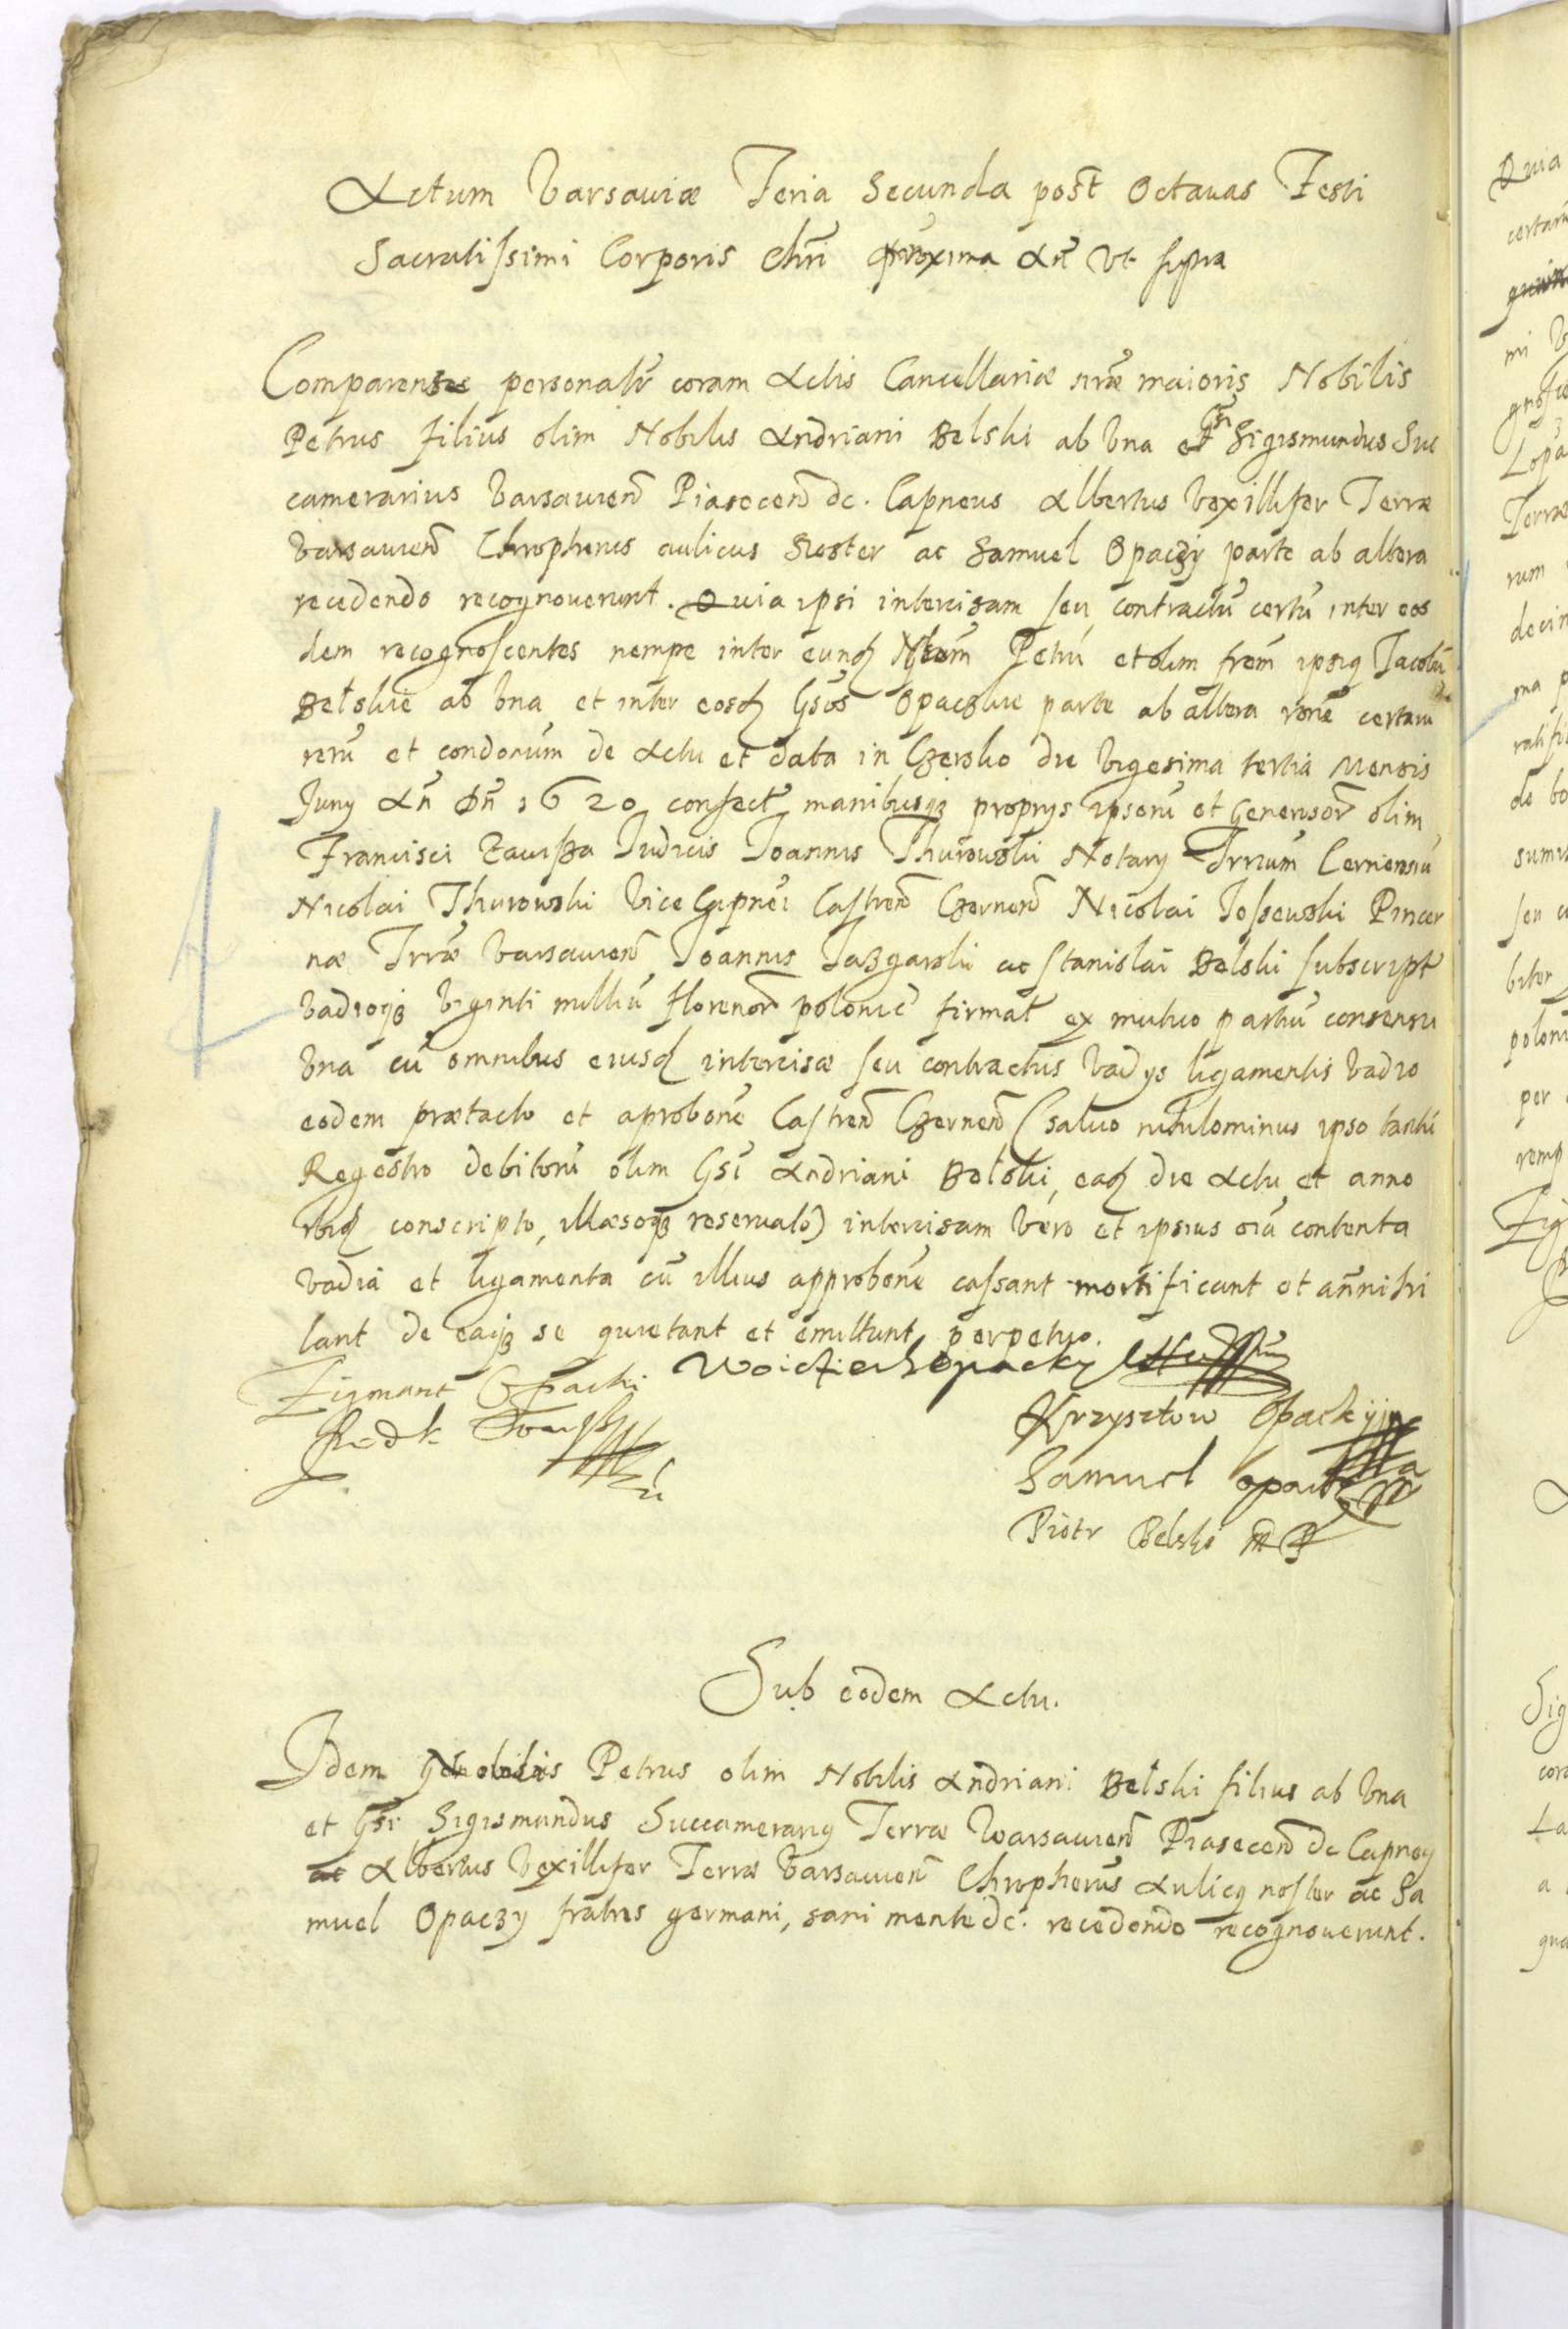 Actum Varsauiæ Feria Secunda post Octauas Festi
Sacratissimi Corporis Chri proxima Añ vt supra
Comparens personalr coram Actis Cancellariæ nræ maioris Nobilis
Petrus filius olim Nobilis Andriani Belski ab vna et Gsi Sigismundus Suc
camerarius Varsauien Piasecen dc. Capneus Albertus Vexillifer Terræ
Varsauien Chrophorus aulicus Noster ac Samuel Opaczy parte ab altera
recedendo recognouerunt. Quia ipsi intercisam seu contractũ certũ inter eos
dem recognoscentes nempe inter eundq Petrũ et olim frem ipsiq Jacobũ
Belskie ab vna et inter eosdq Gsos Opaczkie parte ab altera rone certaru
rerũ et condorum de Actu et data in Czersko die vigesima tertia Mensis
Juny Añ Dñ 1620 confect manibusqz proprys ipsorũ et Generosor olim
Francisci Zawisza Judicis Joannis Thurowski Notary Trrum Cernensiũ
Nicolai Thurowski Vice Capnei Castren Czernen Nicolai Jossewski Pincer
næ Trræ Varsauien Joannis Jazgarski ac Stanislai Belski subscript
vadioqz viginti milliũ florenor polonic firmat ex mutuo partiũ consensu
vna cũ omnibus eiusd intercisæ seu contractus vadys ligamentis vadio
eodem prætacto et aprobone Castren Czernen (saluo nihilominus ipso tantũ
Regestro debitorũ olim Gsi Andriani Belski, ead die Actu et anno
ibid conscripto, illæsoqz reseruato) intercisam vero et ipsius oia contenta
vadia et ligamenta cũ illius approbone cassant mortificant et annihi
lant de eaqz se quietant et emittunt perpetuo.
Zigmant Opacki Woiciech Opacky
Krzysztow Opackyj
Samuel Opacki
Piotr Belski
Sub eodem Actu.
Idem Nobilis Petrus olim Nobilis Andriani Belski filius ab vna
et Gsi Sigismundus Succamerarius Terræ Warsauien Piasecen dc Capney
Albertus Vexillifer Terræ Varsauien Chrophorus Aulicq noster ac Sa
muel Opaczy fratres germani, sani mente dc. recedendo recognouerunt.